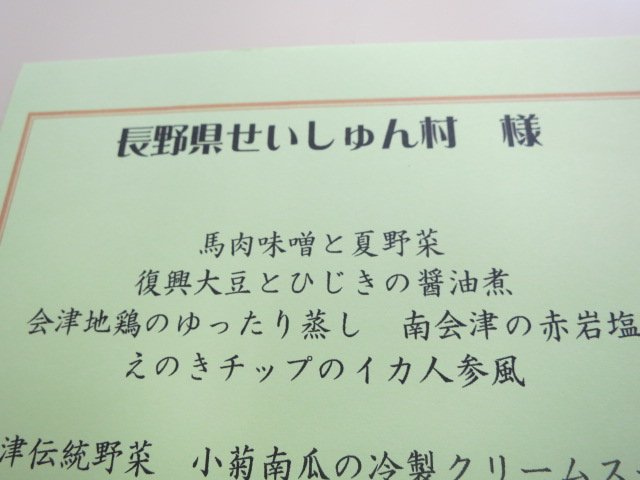 長野県せいしゅん村　様
馬肉味噌と夏野菜
復興大豆とひじきの醤油煮
会津地鶏のゆったり蒸し　南会津の赤岩塩
えのきチップのイカ人参風
津伝統野菜　小菊南瓜の冷製クリームス